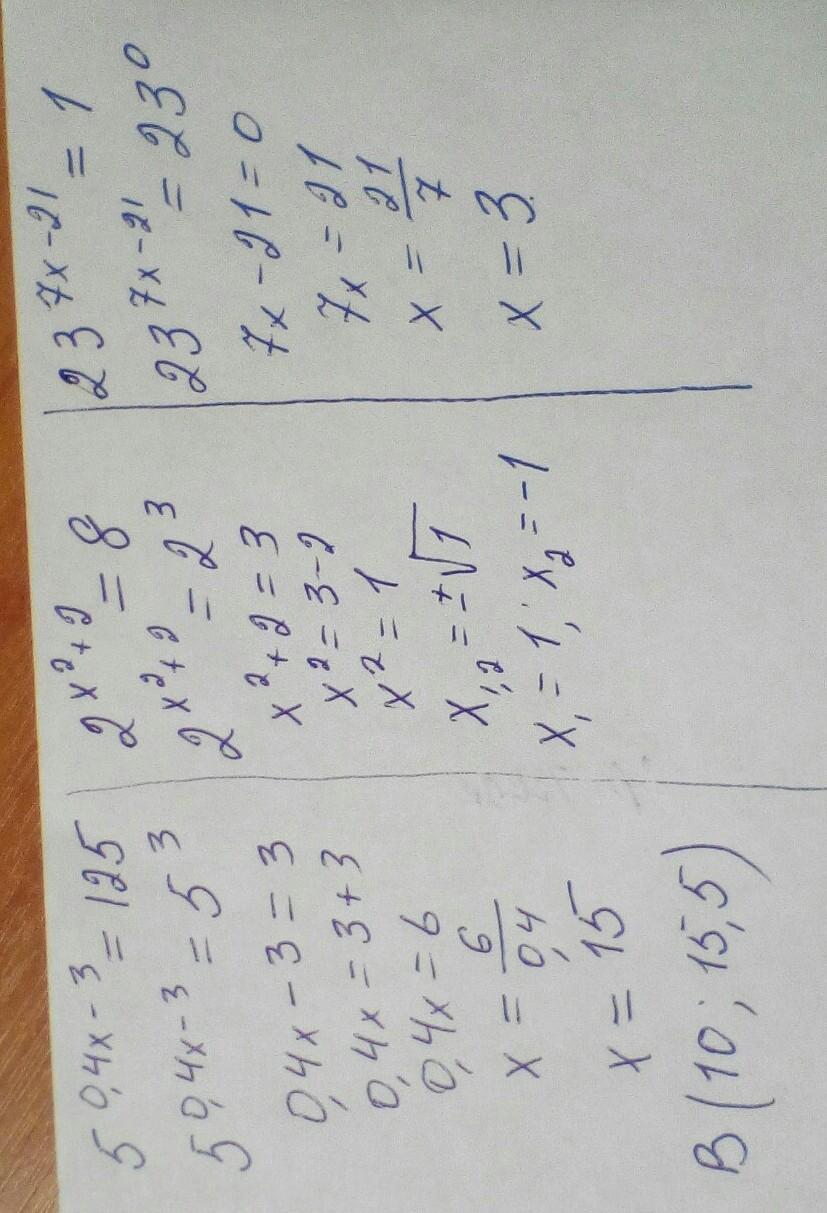 5^{0,4x-3} = 125
5^{0,4x-3} = 5^3
0,4x - 3 = 3
0,4x = 3+3
0,4x = 6
x = \frac{6}{0,4}
x = 15
B (10; 15,5)
2^{x^2+2} = 8
2^{x^2+2} = 2^3
x^2+2 = 3
x^2 = 3-2
x^2 = 1
x_{1,2} = ±√1
x_1 = 1; x_2 = -1
23^{7x-21} = 1
23^{7x-21} = 23^0
7x - 21 = 0
7x = 21
x = \frac{21}{7}
x = 3